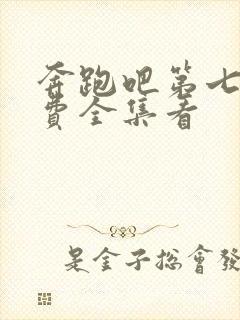 奔跑吧第七
费全集看
是金子总會發